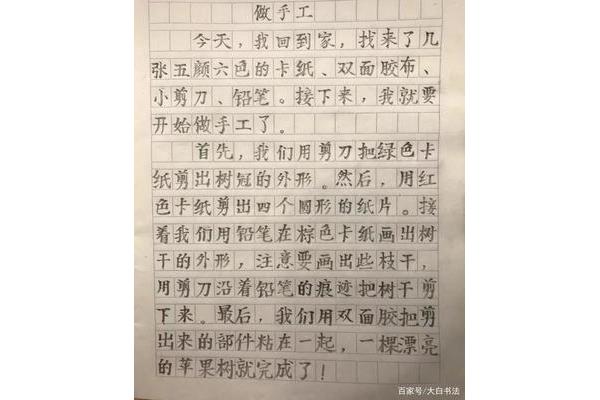 做手工
今天，我回到家，找来了几
张五颜六色的卡纸、双面胶布、
小剪刀、铅笔。接下来，我就要
开始做手工了。
首先，我们用剪刀把绿色卡
纸剪出树冠的外形。然后，用红
色卡纸剪出四个圆形的纸片。接
着我们用铅笔在棕色卡纸画出树
干的外形，注意要画出些枝干，
用剪刀沿着铅笔的痕迹把树干剪
下来。最后，我们用双面胶把剪
出来的部件粘在一起，一棵漂亮
的苹果树就完成了！
百家号/大白书法